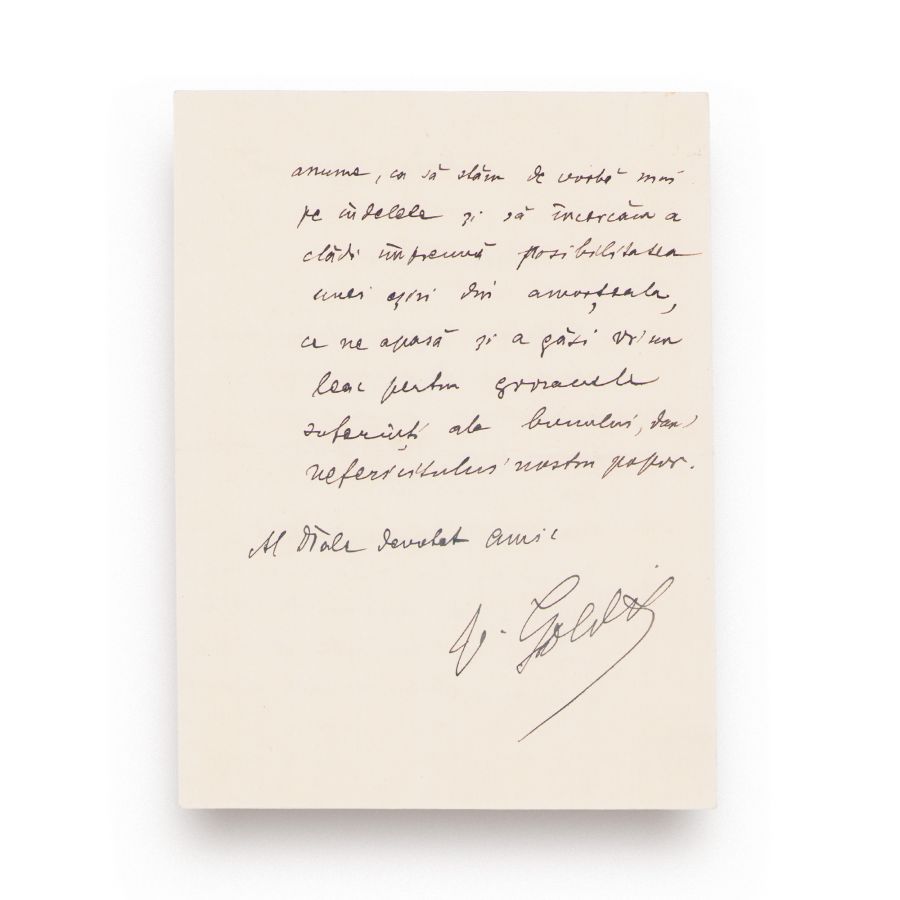 anume, ca să stăm de vorbă mai
pe îndelete și să încercăm a
clădi împreună posibilitatea
unei eșiri din amorțeala,
ce ne apasă și a găsi vr'un
leac pentru grozavele
suferinți ale bunului, dar
nefericitului nostru popor.
Al Dtale devotat amic
V. Goldiș